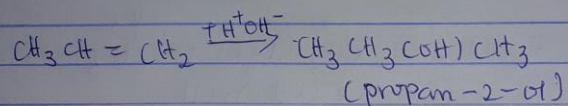 CH₃CH = CH₂ +H⁺OH⁻ → CH₃CH₃(OH)CH₃
(propan-2-ol)